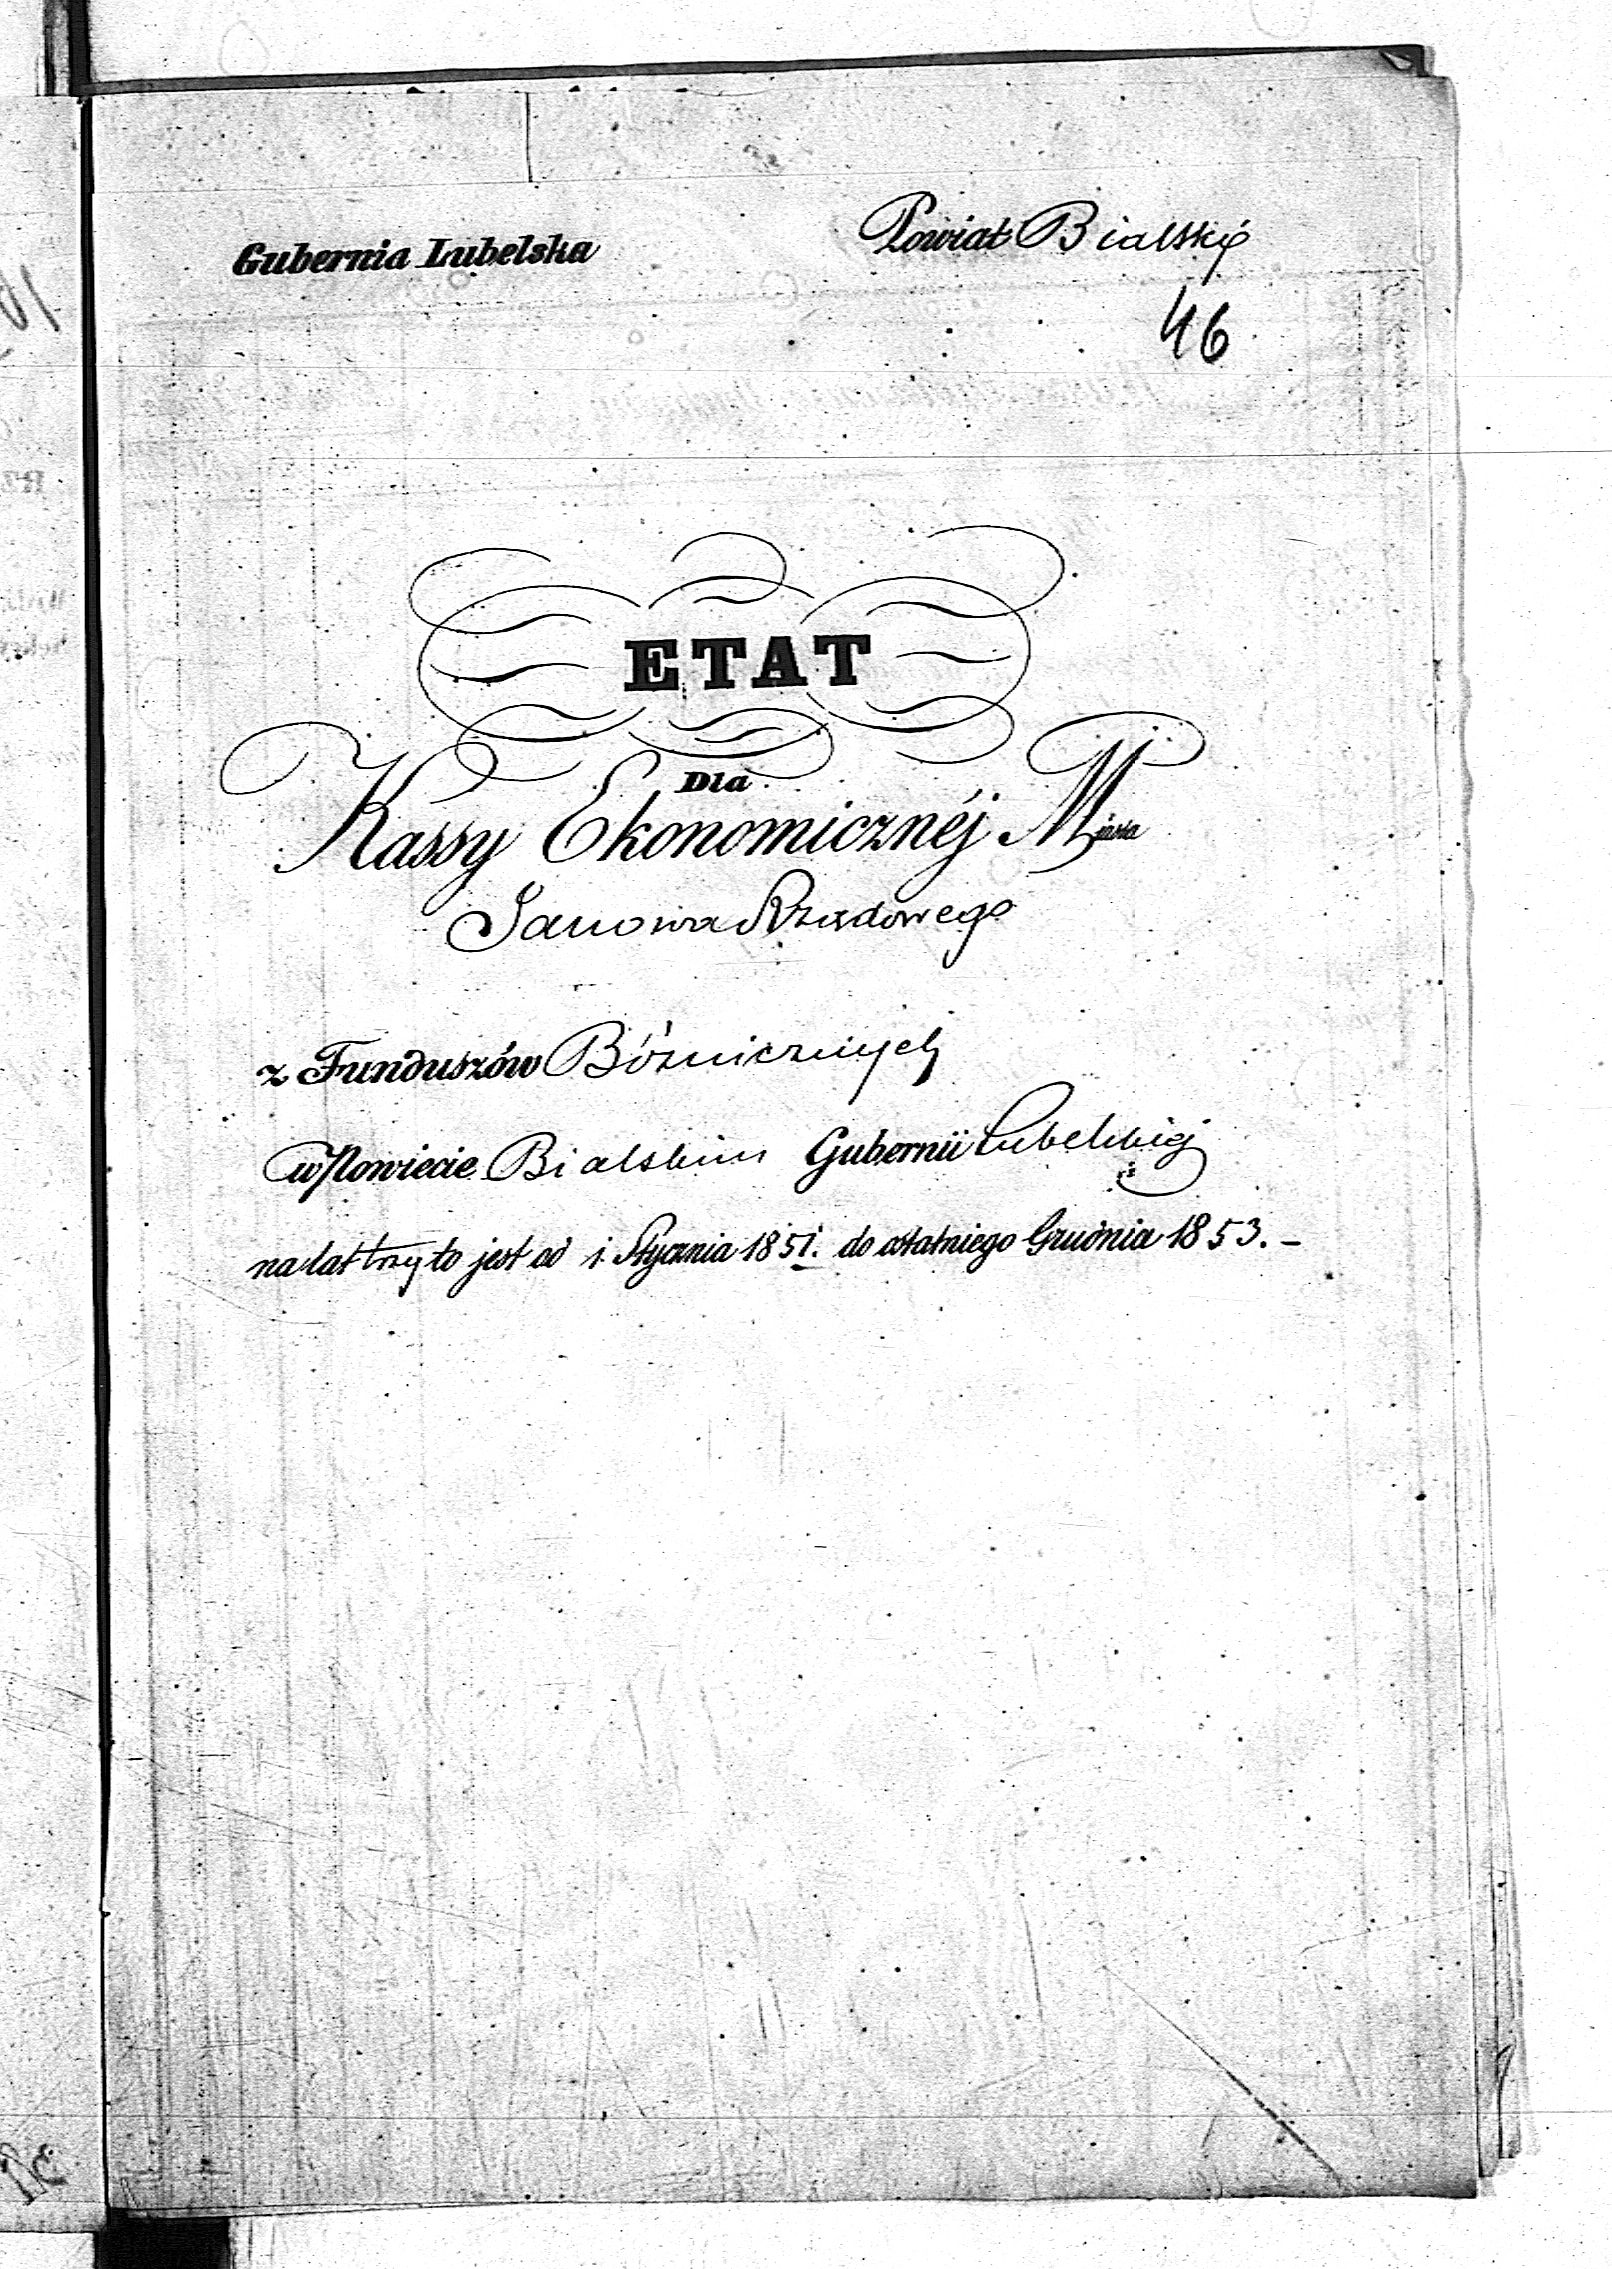 Gubernia Lubelska
Powiat Bialski
46
ETAT
Dla
Kassy Ekonomicznéj Miasta
Janowa Rządowego
z Funduszów Bóżnicznych
w Powiecie Bialskim Gubernii Lubelskiej
na lat trzy to jest od 1. Stycznia 1851. do ostatniego Grudnia 1853. -